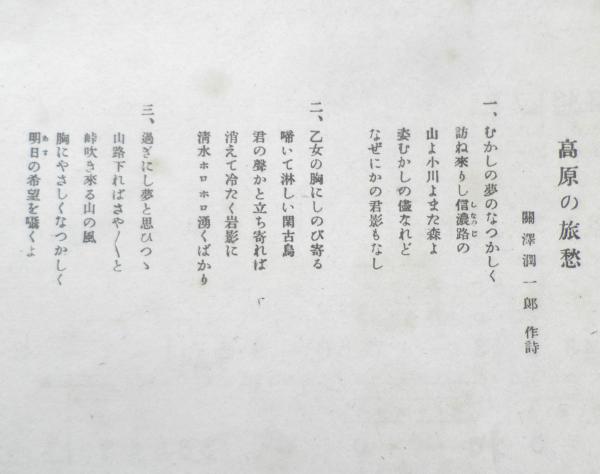 高原の旅愁
關澤潤一郎 作詩
一、むかしの夢のなつかしく
訪ね來りし信濃路の
山よ小川よまた森よ
姿むかしの儘なれど
なぜにかの君影もなし
二、乙女の胸にしのび寄る
啼いて淋しい閑古鳥
君の聲かと立ち寄れば
消えて冷たく岩影に
清水ホロホロ湧くばかり
三、過ぎにし夢と思ひつゝ
山路下ればさや〳〵と
峠吹き來る山の風
胸にやさしくなつかしく
明日の希望を囁くよ